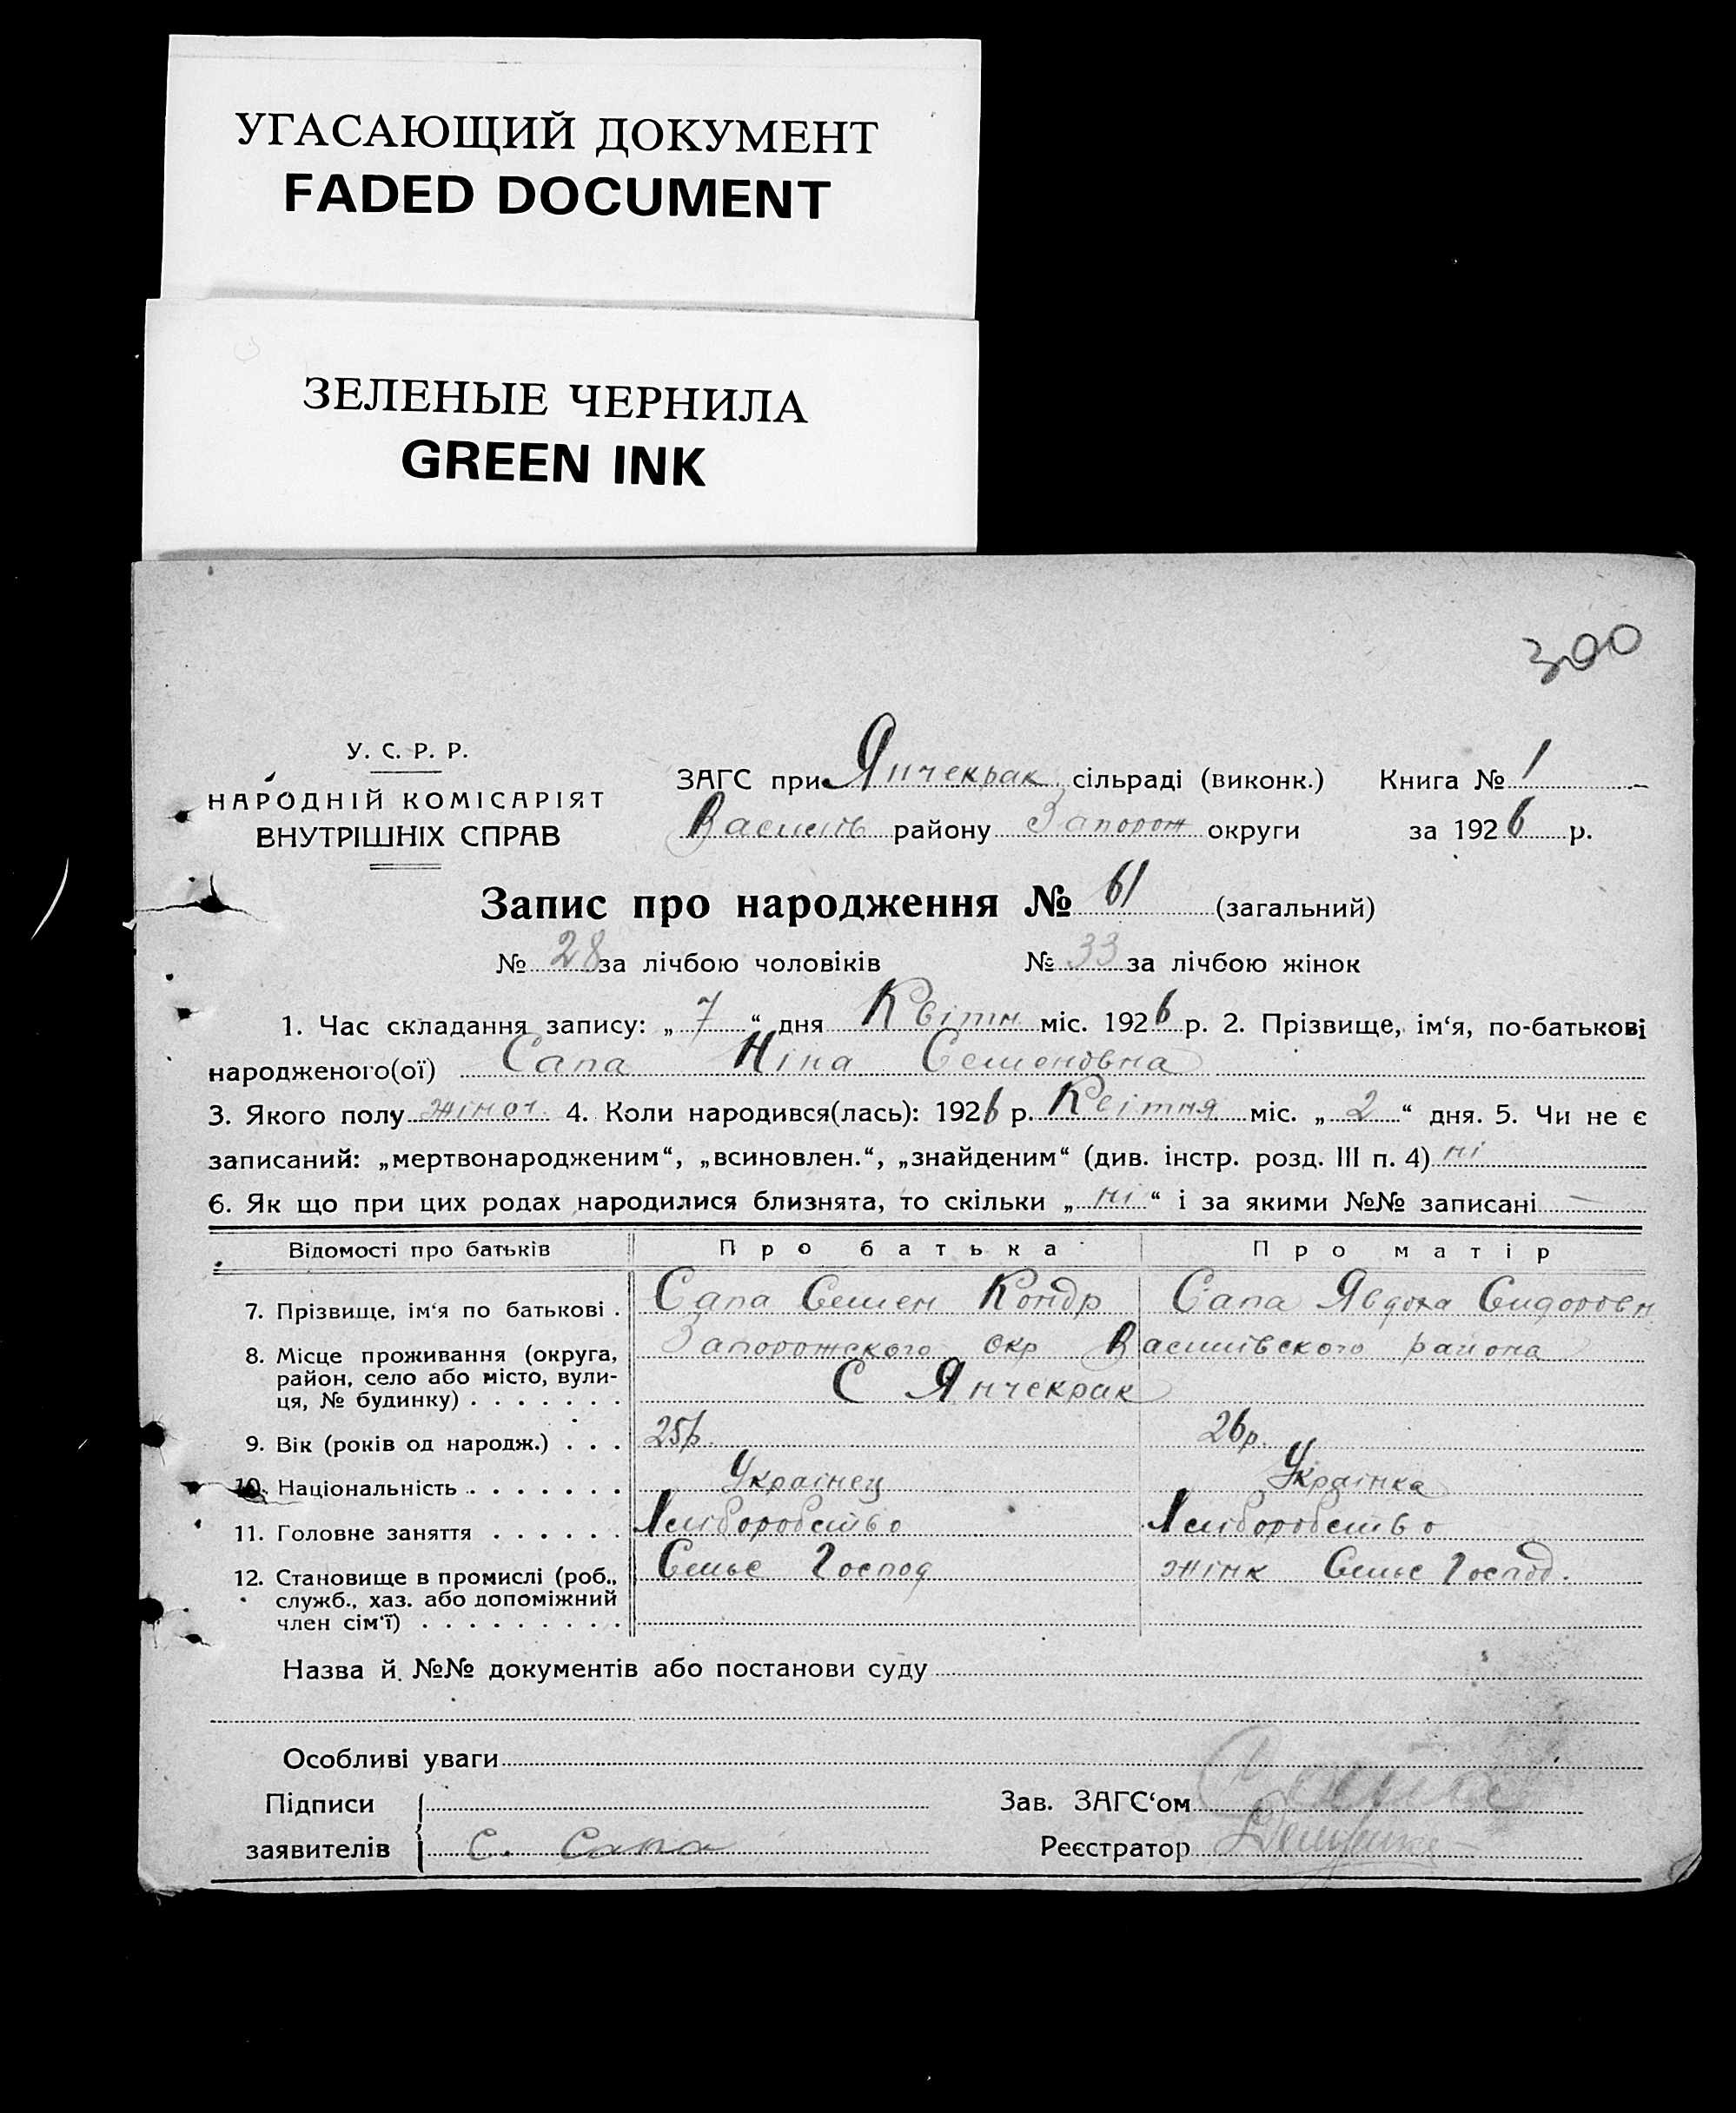 УГАСАЮЩИЙ ДОКУМЕНТ
FADED DOCUMENT
ЗЕЛЕНЫЕ ЧЕРНИЛА
GREEN INK
300
У. С. Р. Р.
НАРОДНІЙ КОМІСАРІЯТ
ВНУТРІШНІХ СПРАВ
ЗАГС при Янчекрак сільраді (виконк.) Книга № 1
Васиитв району Запорож округи за 1926 р.
Запис про народження № 61 (загальний)
№ 28 за лічбою чоловіків № 33 за лічбою жінок
1. Час складання запису: „ 7 “ дня Квітн міс. 1926 р. 2. Прізвище, ім‘я, по-батькові
народженого(ої) Сапа Ніна Семеновна
3. Якого полу жіноч. 4. Коли народився(лась): 1926 р. Квітня міс. „ 2 “ дня. 5. Чи не є
записаний: „мертвонародженим“, „всиновлен.“, „знайденим“ (див. інстр. розд. III п. 4) ні
6. Як що при цих родах народилися близнята, то скільки „ ні “ і за якими №№ записані —
Відомості про батьків Про батька Про матір
7. Прізвище, ім‘я по батькові . Сапа Семен Кондр Сапа Явдоха Сидоровн
8. Місце проживання (округа, Запорожского окр Василівского района
район, село або місто, вули- С Янчекрак
ця, № будинку) . . . . . . .
9. Вік (років од народж.) . . . 25р. 26р.
10. Національність . . . . . . . Українец Українка
11. Головне заняття . . . . . . Хліборобство Хліборобство
12. Становище в промислі (роб., Семьє Господ жінк Семьє Господ.
служб., хаз. або допоміжний
член сім‘ї) . . . . . . . . .
Назва й №№ документів або постанови суду
Особливі уваги
Підписи Зав. ЗАГС‘ом
заявителів С. Сапа Реєстратор